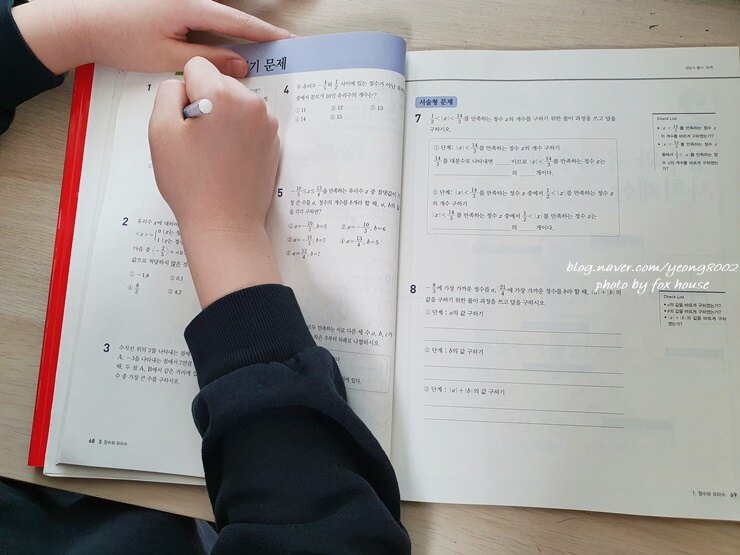 기 문제
1
2 유리수 x에 대하여
다음 중
값으로 적당하지 않은 것
① -1.8 ② 0.1
④ 8/2 ⑤ 4.2
3 수직선 위의 2를 나타내는 점에
A, -3을 나타내는 점에서 7만큼
때, 두 점 A, B에서 같은 거리에
수 중 가장 큰 수를 구하시오.
68 Ⅱ. 정수와 유리수
4 두 유리수 사이에 있는 정수가 아닌
중에서 분모가 10인 유리수의 개수는?
① 11 ② 12 ③ 13
④ 14 ⑤ 15
5 을 만족하는 유리수 x 중 절댓값이
장 큰 수를 a, 정수의 개수를 b개라 할 때, a, b의 값
을 각각 구하면?
① a=-10/3, b=5 ② a=-10/3, b=6
③ a=-10/3, b=7 ④ a=13/4, b=5
⑤ a=13/4, b=7
만족하는 서로 다른 세 수 a, b, c가
수부터 차례로 나열하시오.
서술형 문제
7 1/2<|x|<14/3를 만족하는 정수 x의 개수를 구하기 위한 풀이 과정을 쓰고 답을
구하시오.
① 단계: |x|<14/3를 만족하는 정수 x의 개수 구하기
14/3를 대분수로 나타내면 이므로 |x|<14/3를 만족하는 정수 x는
의 개이다.
② 단계: |x|<14/3를 만족하는 정수 x 중에서 1/2<|x|<14/3를 만족하는 정수 x
의 개수 구하기
|x|<14/3를 만족하는 정수 x 중에서 1/2<|x|<14/3를 만족하는 정수 x는
의 개이다.
Check List
• |x|<14/3를 만족하는 정수 x
의 개수를 바르게 구하였는가?
• |x|<14/3를 만족하는 정수 x
중에서 1/2<|x|<14/3를 만족하는 정
수 x의 개수를 바르게 구하였는
가?
8 에 가장 가까운 정수를 a, 에 가장 가까운 정수를 b라 할 때, |a|+|b|의
값을 구하기 위한 풀이 과정을 쓰고 답을 구하시오.
① 단계: a의 값 구하기
② 단계: b의 값 구하기
③ 단계: |a|+|b|의 값 구하기
Check List
• a의 값을 바르게 구하였는가?
• b의 값을 바르게 구하였는가?
• |a|+|b|의 값을 바르게 구하였
는가?
1. 정수와 유리수 69
blog.naver.com/yeong8002
photo by fox house